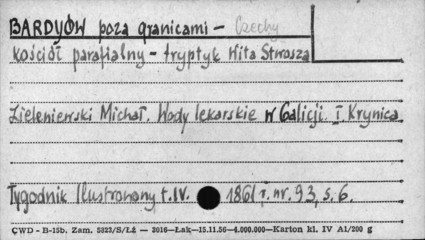 BARDYJÓW poza granicami - Czechy
kościół parafialny - tryptyk Wita Stwosza
Zieleniewski Michał. Wody lekarskie w Galicji. I. Krynica
Tygodnik Ilustrowany t. IV. 1861 r. nr. 93, s. 6.
ĆWD - B-15b. Zam. 5823/S/Łż — 3016—Łak—15.11.56—4.000.000—Karton kl. IV A1/200 g